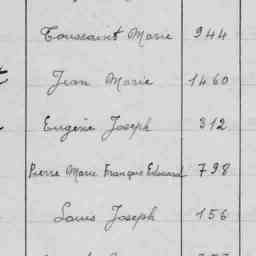 Toussaint Marie 944
Jean Marie 1460
Eugène Joseph 312
Pierre Marie François Edouard 798
Louis Joseph 156